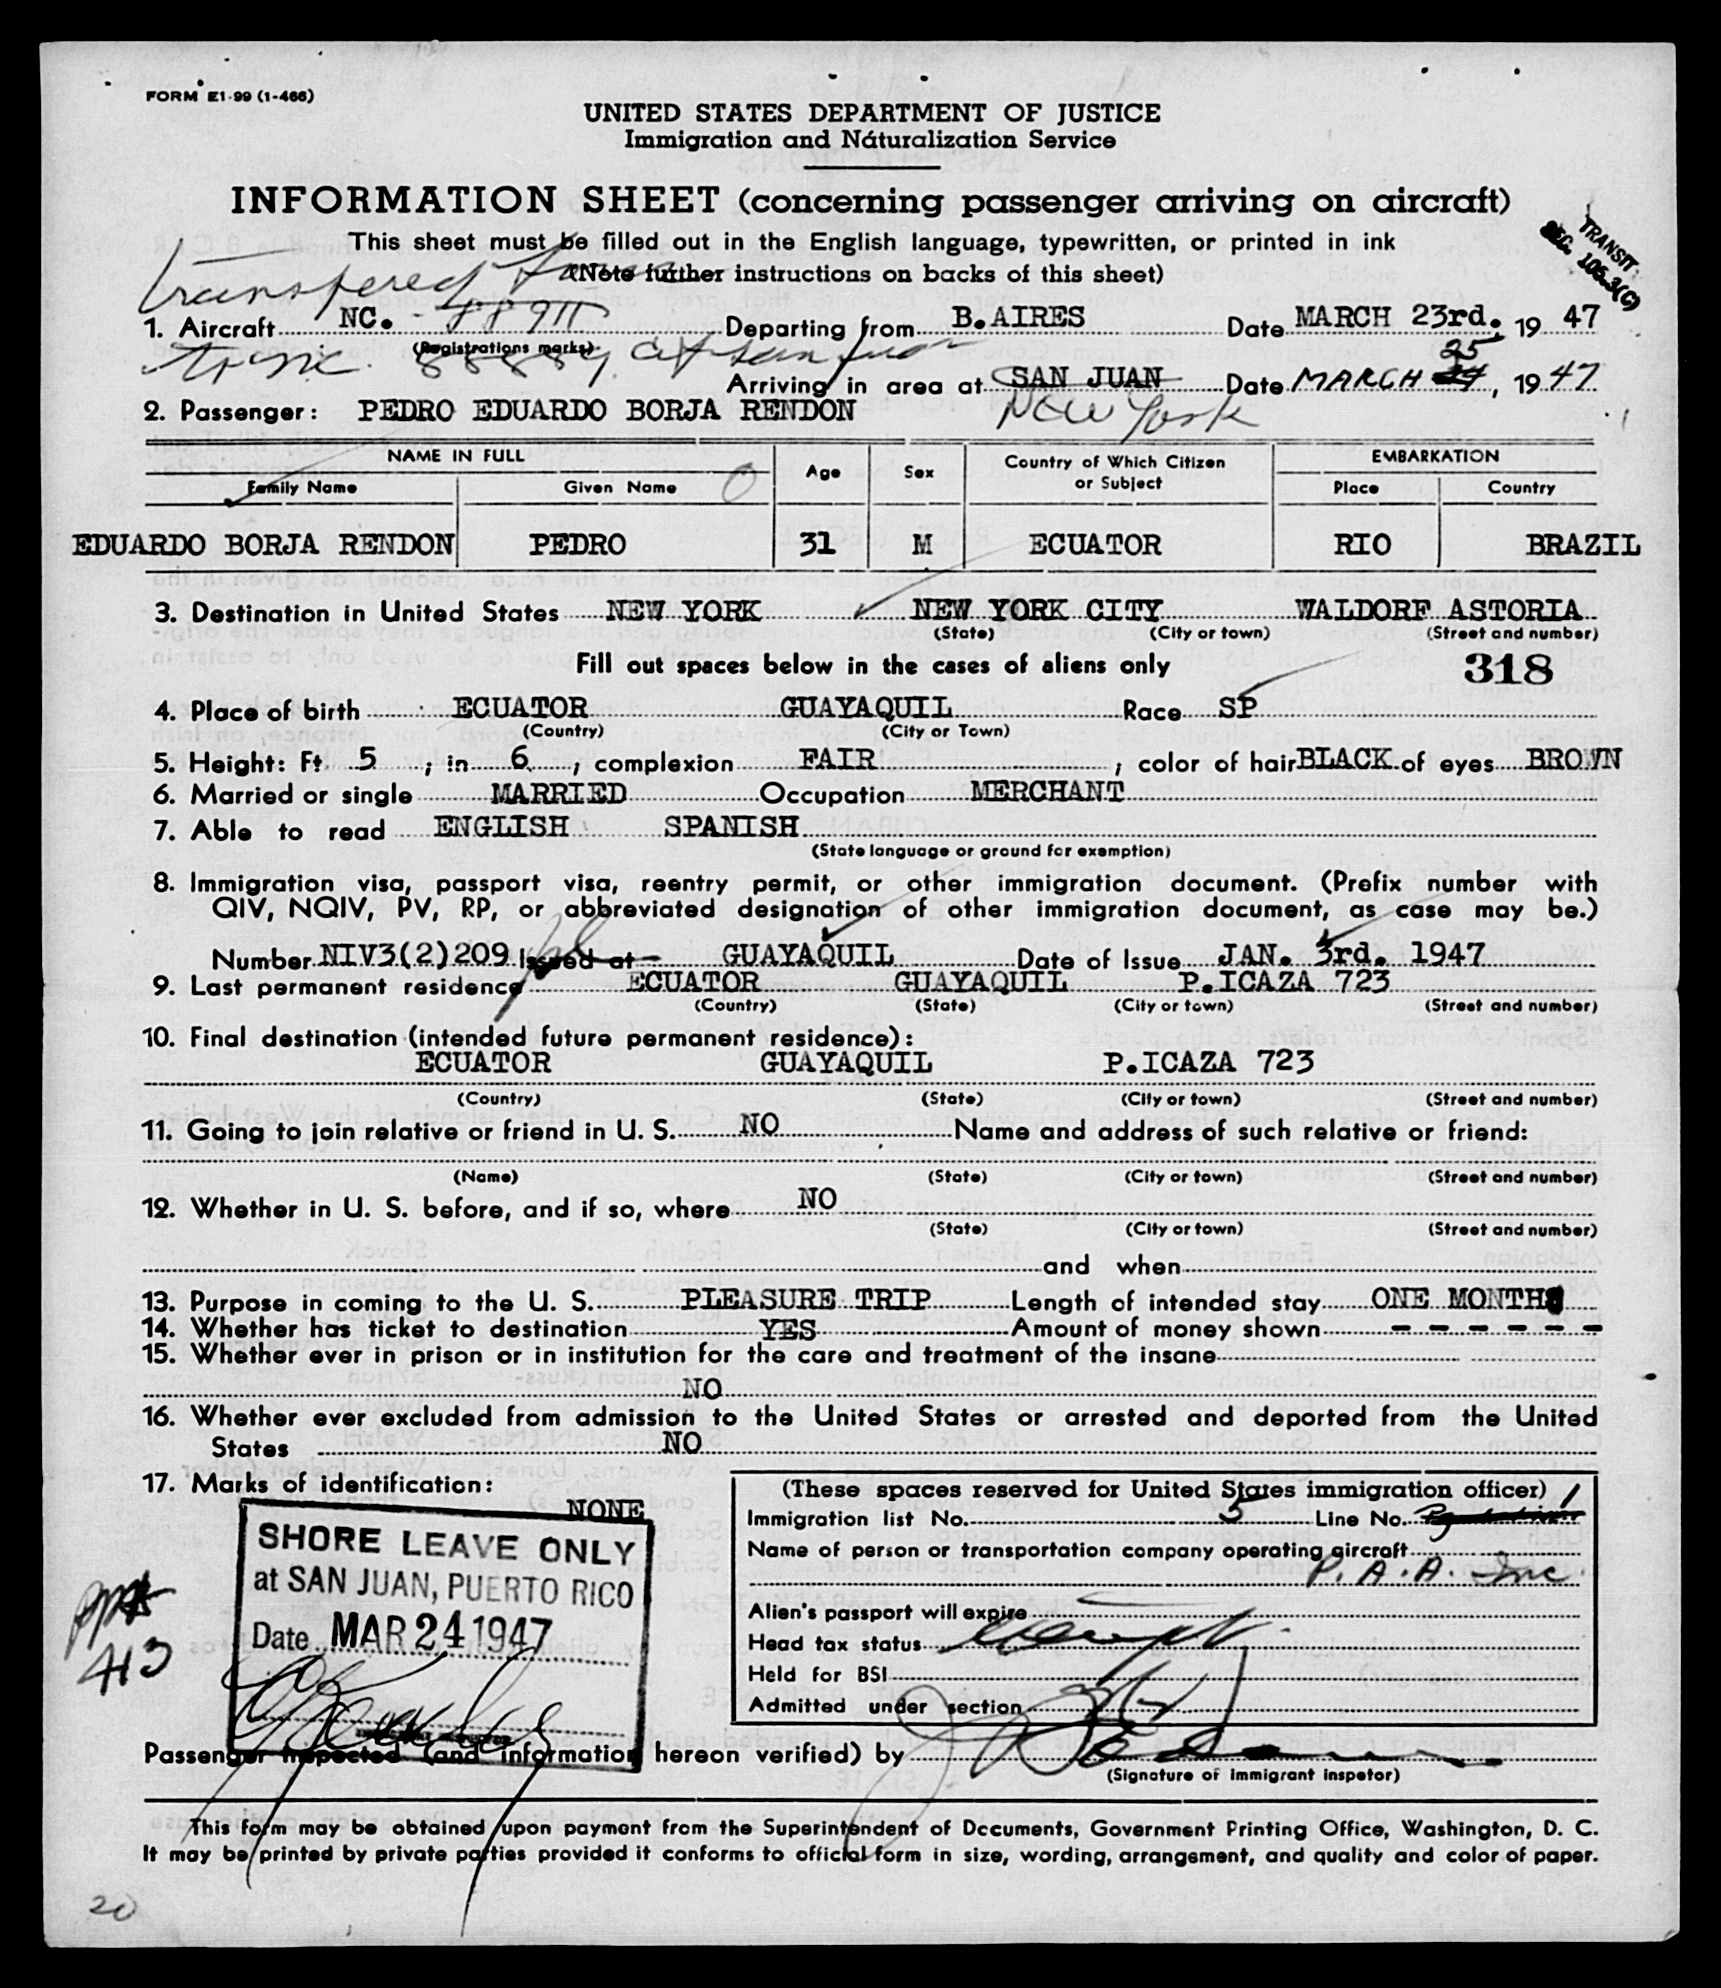 FORM E1-99 (1-466)
UNITED STATES DEPARTMENT OF JUSTICE
Immigration and Naturalization Service
INFORMATION SHEET (concerning passenger arriving on aircraft)
This sheet must be filled out in the English language, typewritten, or printed in ink
(Note further instructions on backs of this sheet)
TRANSIT
SEC. 105.3(C)
transfered from
1. Aircraft NC. - 88911 Departing from B.AIRES Date MARCH 23rd. 19 47
(Registrations marks)
to NC. 88889 at San Juan
Arriving in area at SAN JUAN Date MARCH 24 25, 19 47
New York
2. Passenger: PEDRO EDUARDO BORJA RENDON
NAME IN FULL Age Sex Country of Which Citizen or Subject EMBARKATION
Family Name Given Name Place Country
EDUARDO BORJA RENDON PEDRO 31 M ECUATOR RIO BRAZIL
3. Destination in United States NEW YORK NEW YORK CITY WALDORF ASTORIA
(State) (City or town) (Street and number)
Fill out spaces below in the cases of aliens only
318
4. Place of birth ECUATOR GUAYAQUIL Race SP
(Country) (City or Town)
5. Height: Ft 5 ; in 6 , complexion FAIR ; color of hair BLACK of eyes BROWN
6. Married or single MARRIED Occupation MERCHANT
7. Able to read ENGLISH SPANISH
(State language or ground for exemption)
8. Immigration visa, passport visa, reentry permit, or other immigration document. (Prefix number with
QIV, NQIV, PV, RP, or abbreviated designation of other immigration document, as case may be.)
Number NIV3(2)209 Issued at GUAYAQUIL Date of Issue JAN. 3rd. 1947
9. Last permanent residence ECUATOR GUAYAQUIL P.ICAZA 723
(Country) (State) (City or town) (Street and number)
10. Final destination (intended future permanent residence):
ECUATOR GUAYAQUIL P.ICAZA 723
(Country) (State) (City or town) (Street and number)
11. Going to join relative or friend in U. S. NO Name and address of such relative or friend:
(Name) (State) (City or town) (Street and number)
12. Whether in U. S. before, and if so, where NO
(State) (City or town) (Street and number)
and when
13. Purpose in coming to the U. S. PLEASURE TRIP Length of intended stay ONE MONTH
14. Whether has ticket to destination YES Amount of money shown - - - - - -
15. Whether ever in prison or in institution for the care and treatment of the insane
NO
16. Whether ever excluded from admission to the United States or arrested and deported from the United
States NO
17. Marks of identification:
NONE
SHORE LEAVE ONLY
at SAN JUAN, PUERTO RICO
Date MAR 24 1947
413
(These spaces reserved for United States immigration officer)
Immigration list No. 5 Line No. 1
Name of person or transportation company operating aircraft
P.A.A. Inc.
Alien's passport will expire
Head tax status exempt
Held for BSI
Admitted under section
Passenger inspected (and information hereon verified) by
(Signature of immigrant inspetor)
This form may be obtained upon payment from the Superintendent of Documents, Government Printing Office, Washington, D. C.
It may be printed by private parties provided it conforms to official form in size, wording, arrangement, and quality and color of paper.
20